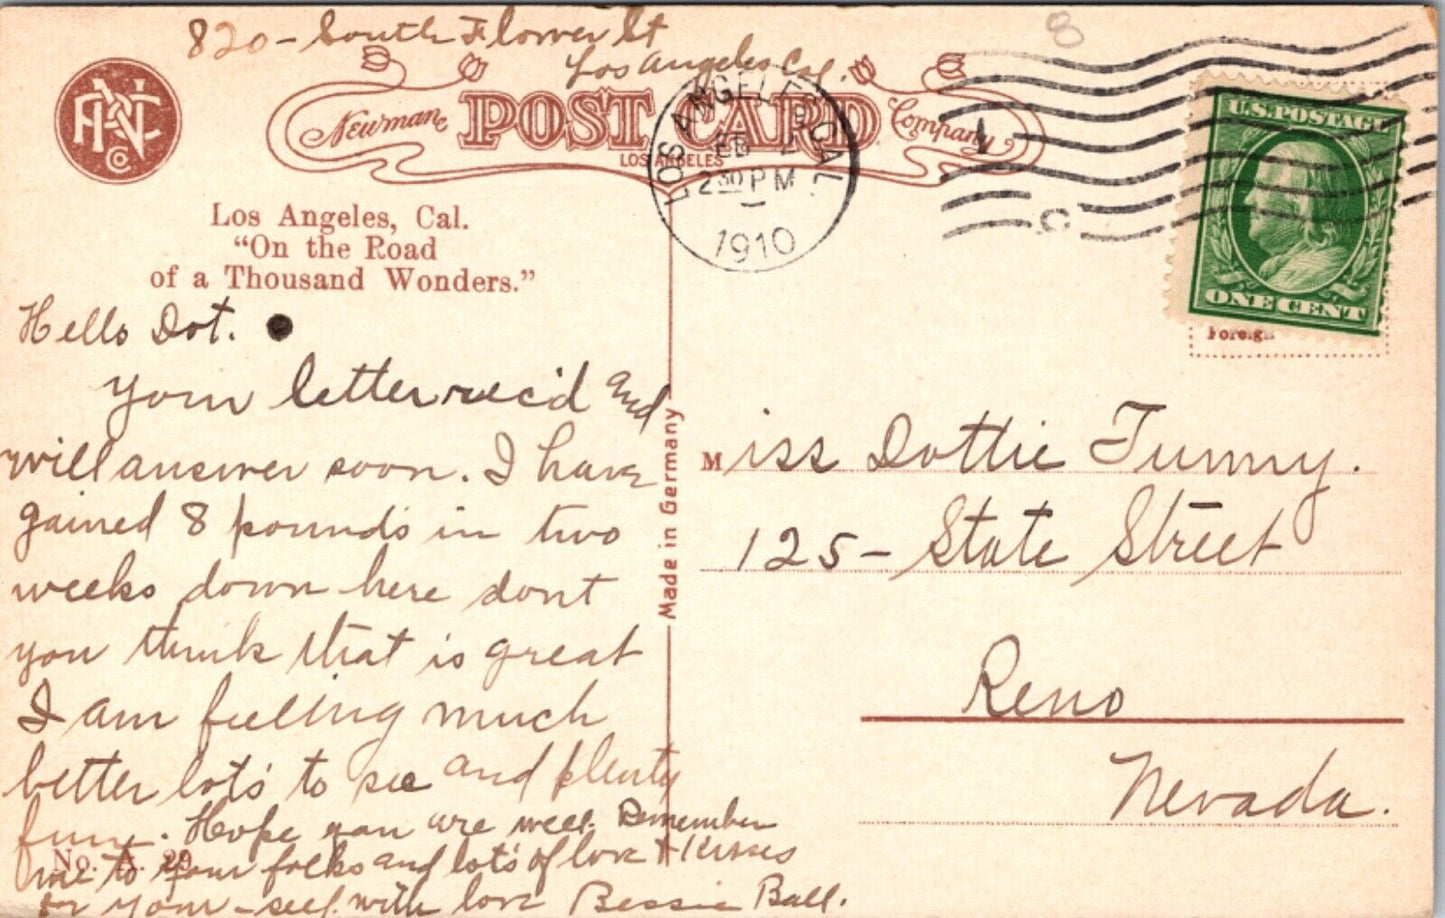 820 - South Flower St
Los Angeles Cal.
Newman POST CARD Company
LOS ANGELES
LOS ANGELES, CAL.
FEB
2 30 PM
1910
U.S. POSTAGE
ONE CENT
Foreign
Los Angeles, Cal.
“On the Road
of a Thousand Wonders.”
Hello Dot.
Your letter rec'd and
will answer soon. I have
gained 8 pounds in two
weeks down here dont
you think that is great
I am feeling much
better lots to see and plenty
fun. Hope you are well. Remember
me to your folks and lots of love & kisses
for your-self. with love Bessie Ball.
No. A. 29
Made in Germany
Miss Dottie Tunny.
125 - State Street
Reno
Nevada.